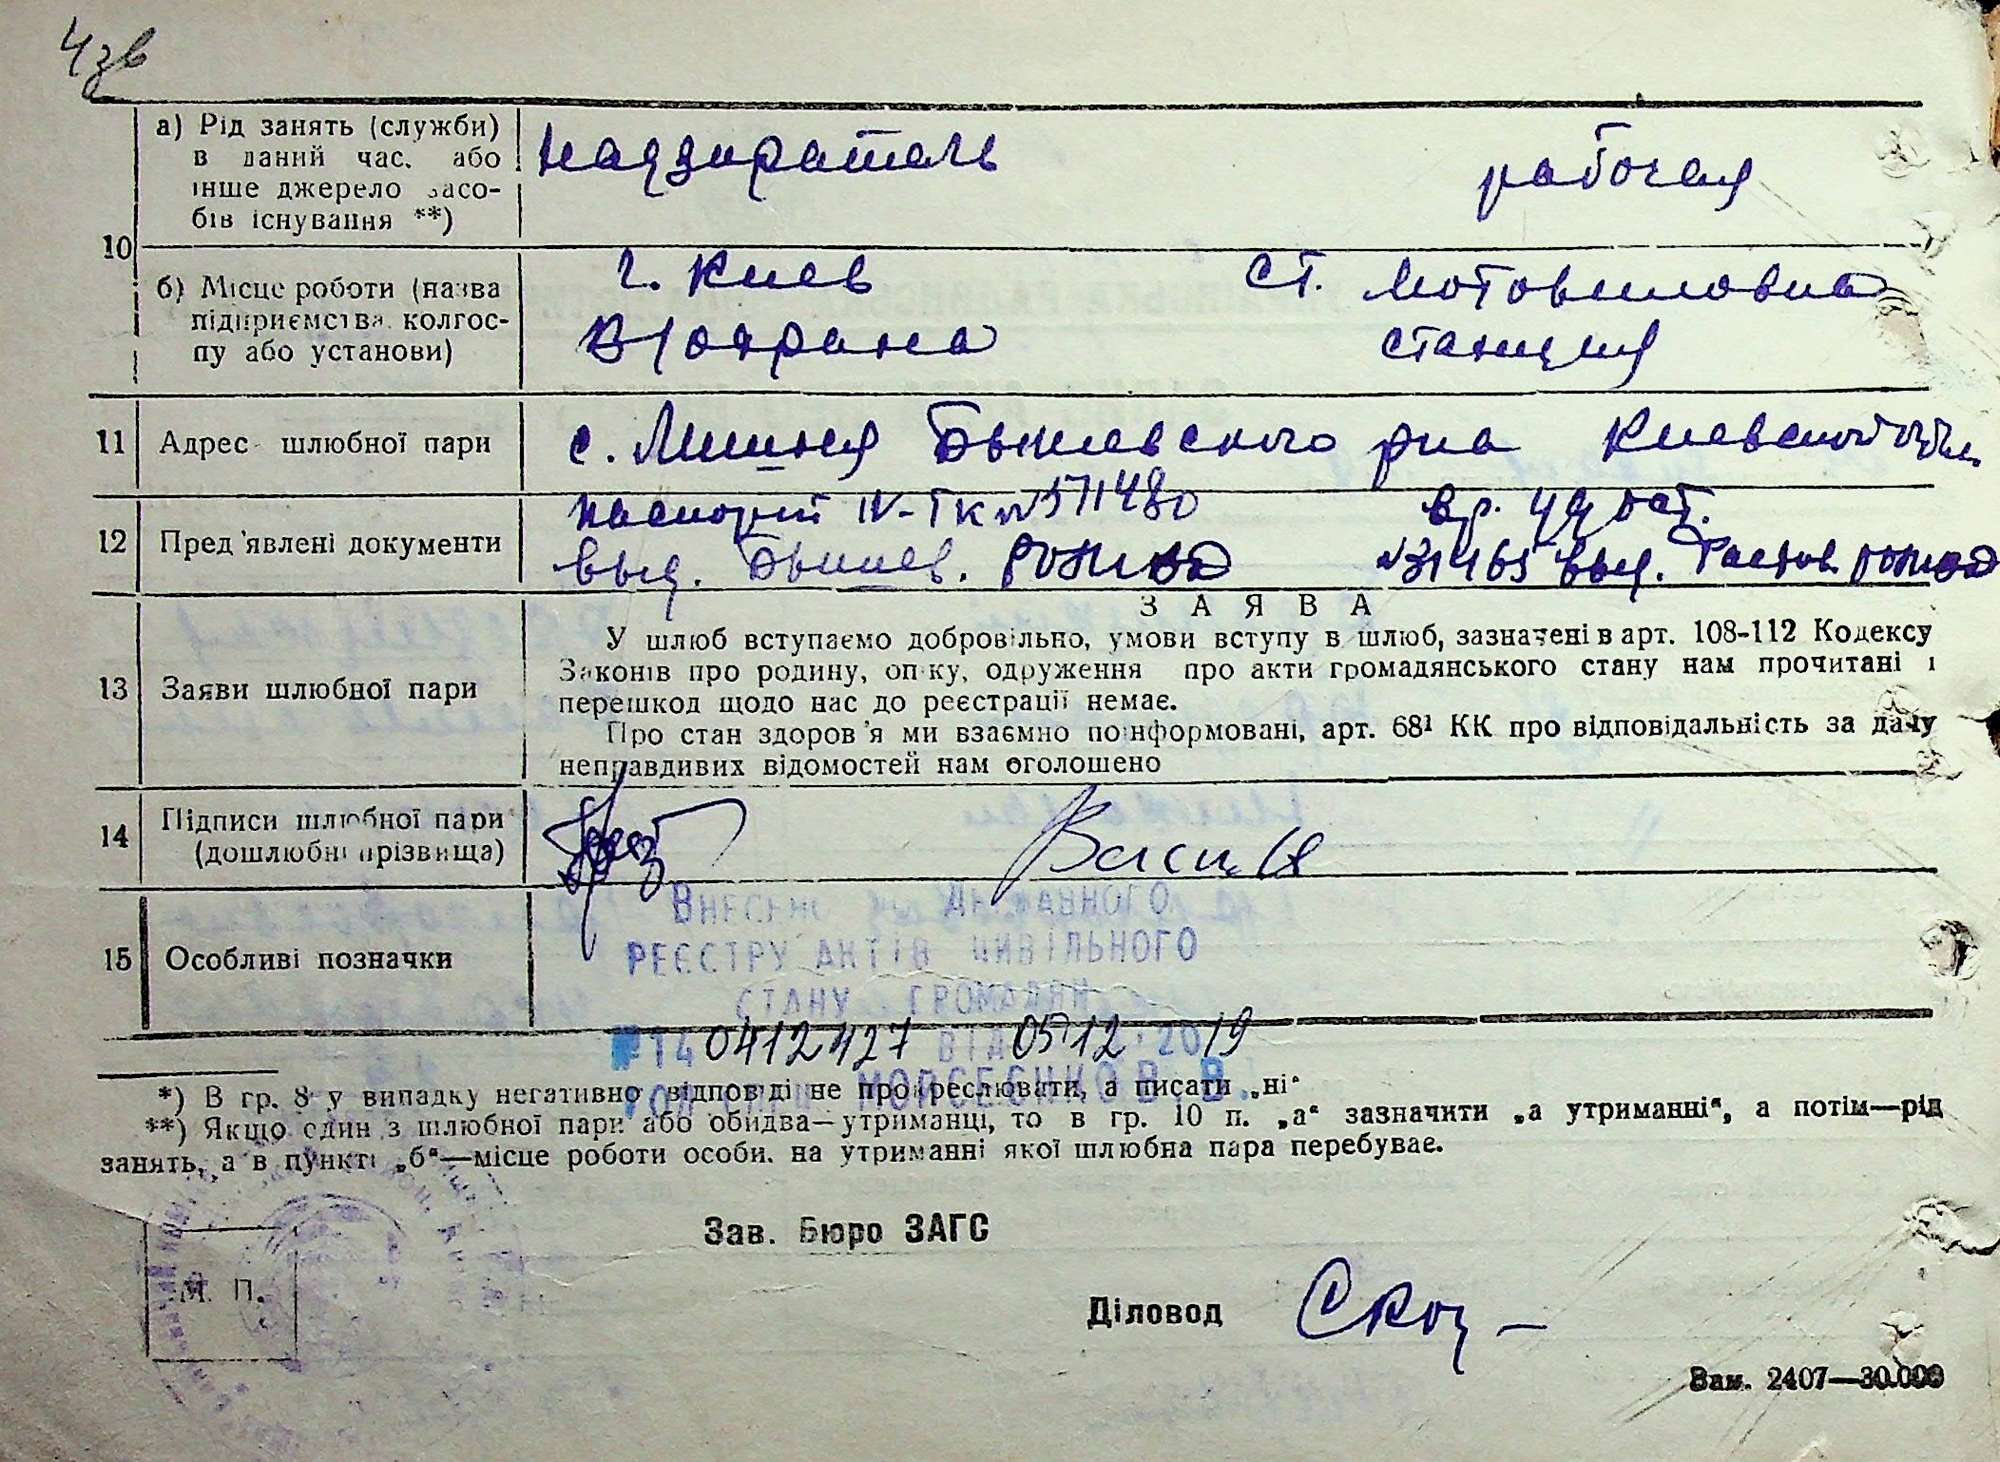 4зв
10
а) Рід занять (служби)
в даний час, або
інше джерело засо-
бів існування **)
надзиратель
рабочая
б) Місце роботи (назва
підприємства, колгос-
пу або установи)
г. Киев
ст. Мотовиловка
В/охрана
станция
11
Адрес шлюбної пари
с. Лишня Бышевского р-на Киевской обл.
12
Пред'явлені документи
паспорт IV-ТК № 571480
выд. Бышев. РОМВД
вр. уд. ост.
№ 31465 выд. Фастов. РОМВД
13
Заяви шлюбної пари
ЗАЯВА
У шлюб вступаємо добровільно, умови вступу в шлюб, зазначені в арт. 108-112 Кодексу
Законів про родину, опіку, одруження про акти громадянського стану нам прочитані і
перешкод щодо нас до реєстрації немає.
Про стан здоров'я ми взаємно поінформовані, арт. 68¹ КК про відповідальність за дачу
неправдивих відомостей нам оголошено
14
Підписи шлюбної пари
(дошлюбні прізвища)
15
Особливі позначки
Внесено Державного
реєстру актів цивільного
стану громадян
№ 140412427 від 05.12.2019
Гол. спец. Моісеєнко В.В.
*) В гр. 8 у випадку негативної відповіді не прокреслювати, а писати „ні“
**) Якщо один з шлюбної пари або обидва—утриманці, то в гр. 10 п. „а“ зазначити „а утриманні“, а потім—рід
занять, а в пункті „б“—місце роботи особи, на утриманні якої шлюбна пара перебуває.
Зав. Бюро ЗАГС
М. П.
Діловод
Зам. 2407—30.000